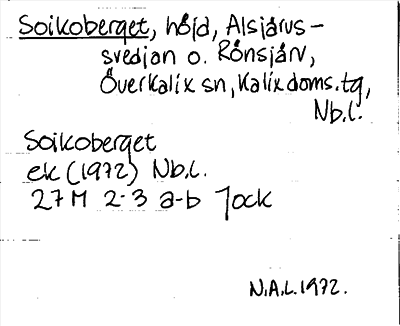 Soikoberget, höjd, Alsjärvs-
svedjan o. Rönsjärv,
Överkalix sn, Kalix doms.tg,
Nb.l.
Soikoberget
ek (1972) Nb.l.
27 M 2-3 a-b Jock
N.A.L. 1972.